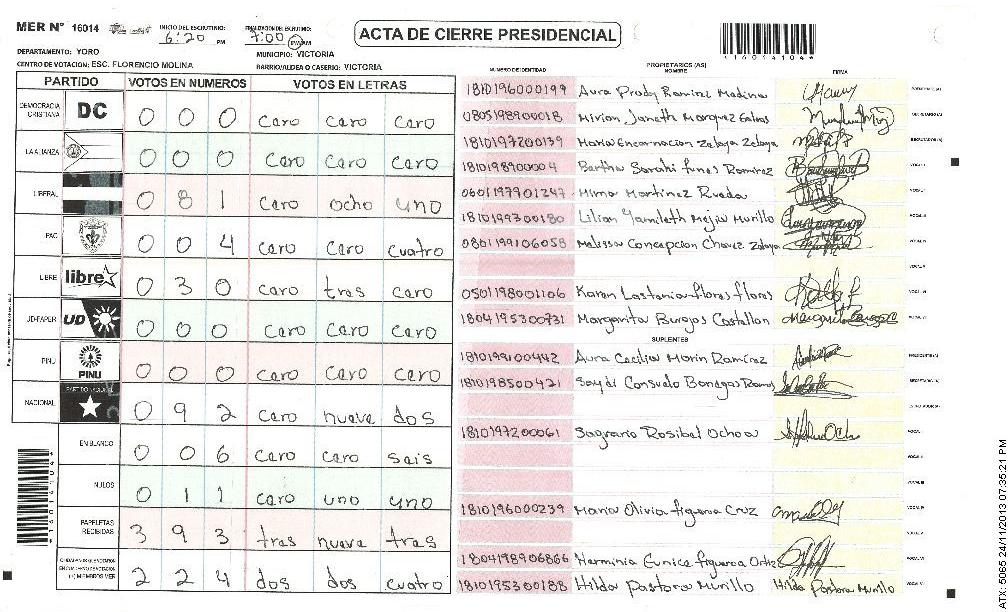 MER Nº 16014 INICIO DEL ESCRUTINIO: 6:20 PM 7:00 PM
ACTA DE CIERRE PRESIDENCIAL
*16014104*
DEPARTAMENTO: YORO MUNICIPIO: VICTORIA
CENTRO DE VOTACION: ESC. FLORENCIO MOLINA BARRIO/ALDEA O CASERIO: VICTORIA
PARTIDO VOTOS EN NUMEROS VOTOS EN LETRAS
DEMOCRACIA CRISTIANA DC 0 0 0 caro caro caro
LA ALIANZA 0 0 0 caro caro caro
LIBERAL 0 8 1 caro ocho uno
PAC 0 0 4 caro caro cuatro
LIBRE libre 0 3 0 caro tras caro
UD-FAPER UD 0 0 0 caro caro caro
PINU PINU 0 0 0 caro caro caro
NACIONAL PARTIDO NACIONAL 0 9 2 caro nueva dos
EN BLANCO 0 0 6 caro caro sais
NULOS 0 1 1 caro uno uno
PAPELETAS RECIBIDAS 3 9 3 tras nueva tras
(+) MIEMBROS MER 2 2 4 dos dos cuatro
*16014104*
NUMERO DE IDENTIDAD PROPIETARIOS (AS) NOMBRE FIRMA
1810196000199 Aura Prody Ramirez Madina
0805198900018 Mirian Janeth Marquez
1810197200139 Maria Encarnacion Zelaya Zelaya
1810198900004 Bertha Sarahi funes Ramirez
0601197901247 Mirna Martinez Rueda
1810199300180 Lilian Yamileth Mejia Murillo
0801199106058 Melissa Concepcion Chavez Zelaya
0501198001106 Karen Lastenia flores flores
1804195300731 Margarita Burgos Castellon
SUPLENTES
1810199100442 Aura Cecilia Marin Ramirez
1810198500421 Saydi Consuelo Banegas Ramos
1810197200061 Sagrario Rosibel Ochoa
1810196000239 Maria Olivia figueroa Cruz
1804198906866 Herminia Eunice figueroa Ortiz
1810195300188 Hilda Pastora Murillo Hilda Pastora Murillo
ATX-5065 24/11/2013 07:35:21 PM